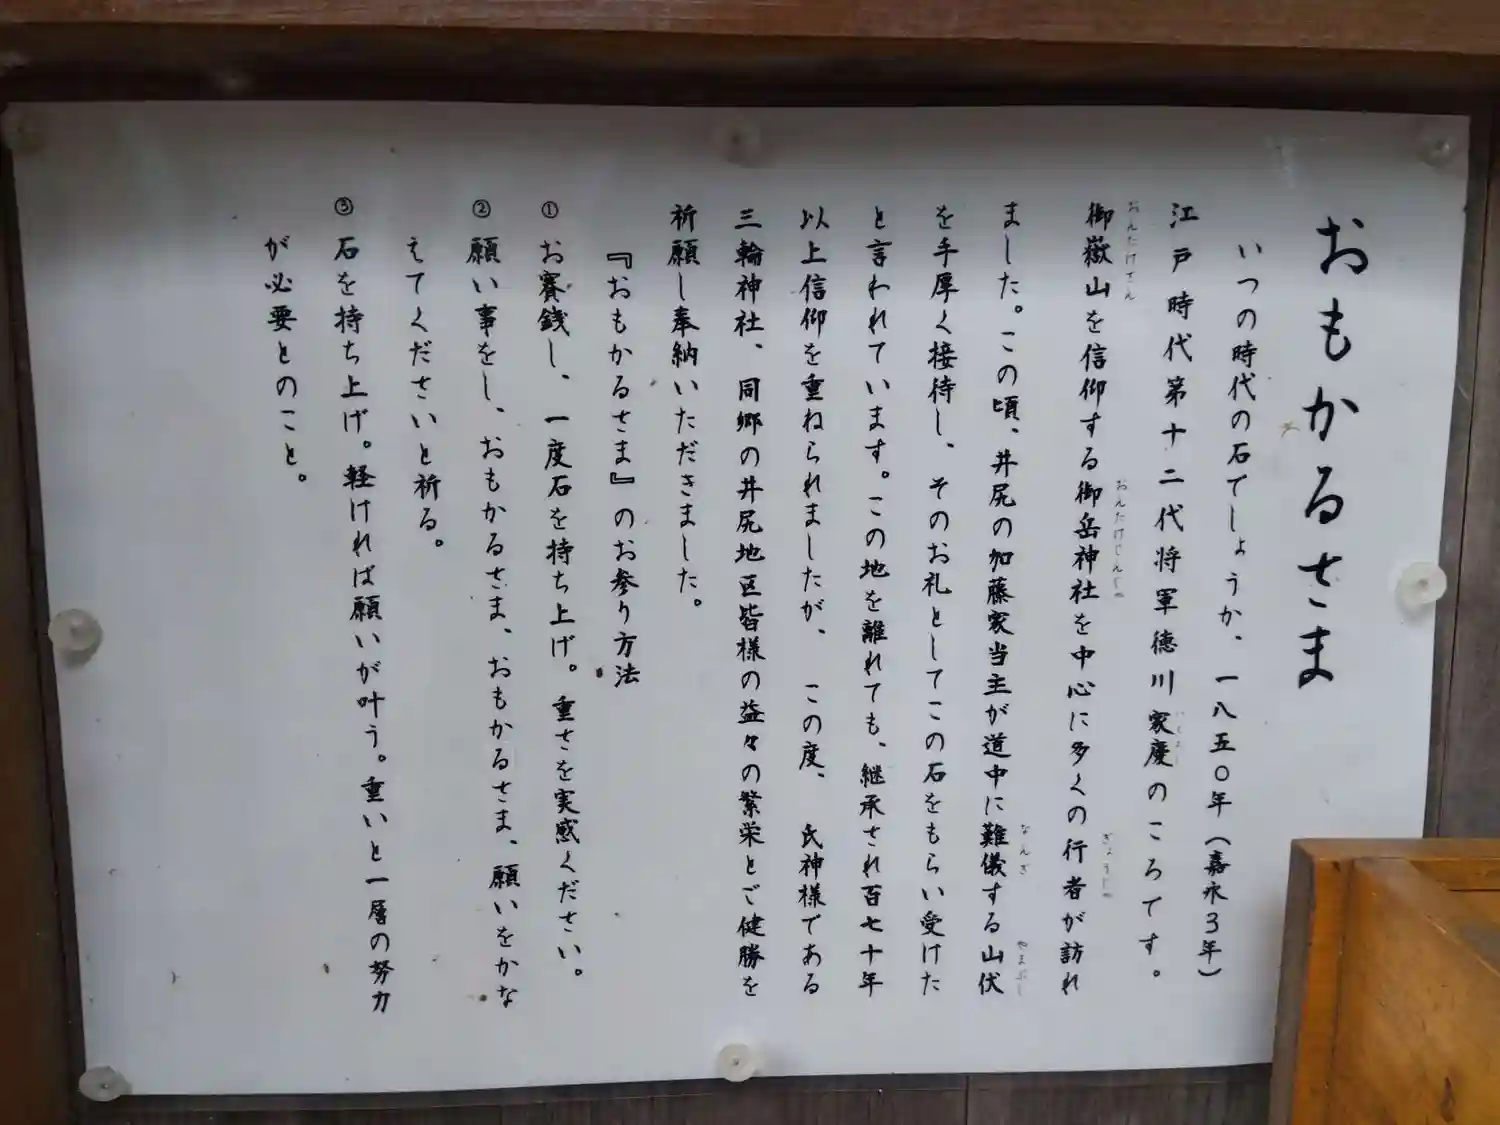 おもかるさま
いつの時代の石でしょうか、一八五〇年（嘉永３年）
江戸時代第十二代将軍徳川家慶のころです。
御嶽山を信仰する御岳神社を中心に多くの行者が訪れ
ました。この頃、井尻の加藤家当主が道中に難儀する山伏
を手厚く接待し、そのお礼としてこの石をもらい受けた
と言われています。この地を離れても、継承され百七十年
以上信仰を重ねられましたが、この度、氏神様である
三輪神社、同郷の井尻地区皆様の益々の繁栄とご健勝を
祈願し奉納いただきました。
『おもかるさま』のお参り方法
① お賽銭し、一度石を持ち上げ。重さを実感ください。
② 願い事をし、おもかるさま、おもかるさま、願いをかな
えてくださいと祈る。
③ 石を持ち上げ。軽ければ願いが叶う。重いと一層の努力
が必要とのこと。